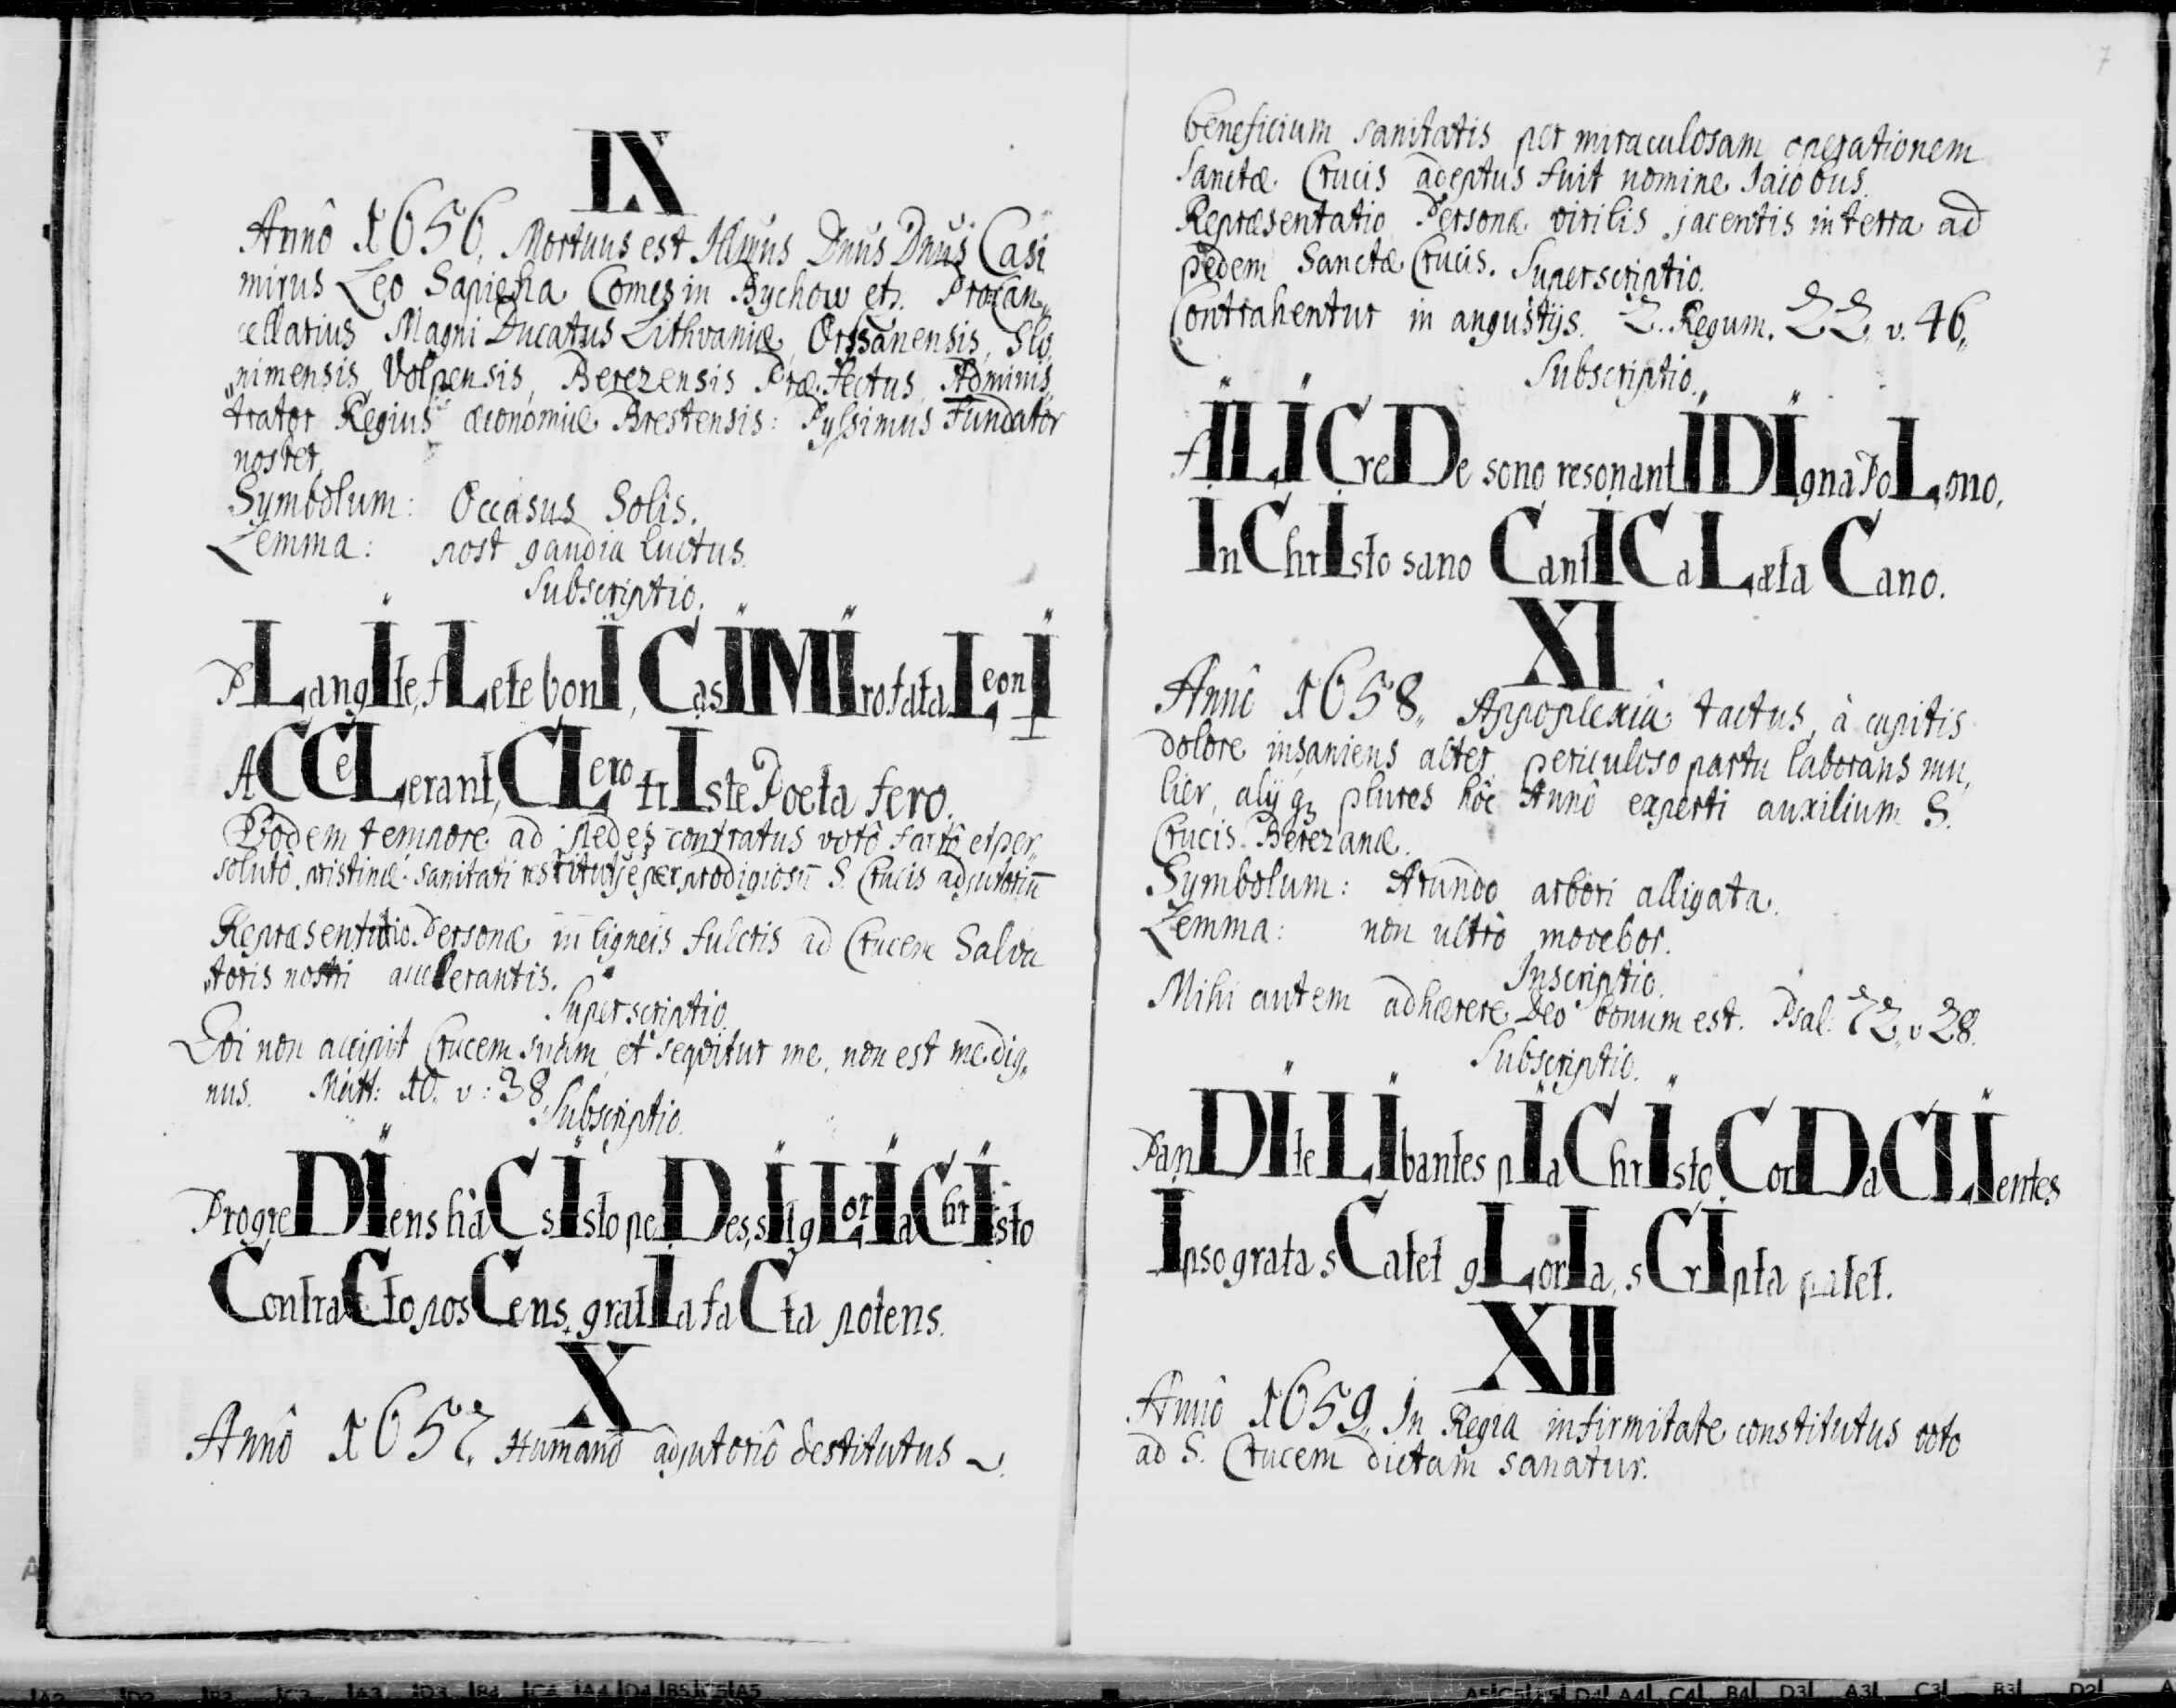 IX
Annô 1656, Mortuus est Illmus Dnus Dnus Casi
mirus Leo Sapieha Comes in Bychow etc. Procan„
cellarius Magni Ducatus Lithvaniæ, Orssanensis, Slo„
„nimensis, Volpensis, Berezensis Præfectus, Adminis„
„trator Regius œconomiæ Brestensis: Pyssimus Fundator
noster.
Symbolum: Occasus Solis.
Lemma: post gaudia luctus.
Subscriptio.
PLangIte, fLete bonI, CasIMIro fata LeonI
ACCeLerant, CLero trIste Poeta fero.
Eodem tempore ad pedes contratus votô factô et per„
solutô, pristinæ sanitati restitutus per prodigiosū S. Crucis adjutoriū
Repræsentatio Personæ in ligneis fulcris ad Crucem Salva
„toris nostri accelerantis.
Superscriptio.
Qvi non accipit Crucem suam, et seqvitur me, non est me dig„
nus. Matt: 10. v: 38.
Subscriptio.
ProgreDIens hâC sIsto peDes, sIt gLorIa ChrIsto
ContraCto posCens, gratIa faCta potens.
X
Annô 1657. Humanô adjutoriô destitutus
7
beneficium sanitatis per miraculosam operationem
Sanctæ Crucis adeptus fuit nomine Iacobus.
Repræsentatio Personæ virilis jacentis in terra ad
pedem Sanctæ Crucis. Superscriptio.
Contrahentur in angustijs. 2. Regum. 22. v. 46„
Subscriptio.
fILI CreDe sono resonant IDIgna PoLono,
In ChrIsto sano CantICa Læta Cano.
XI
Annô 1658„ Appoplexiâ tactus, à capitis
dolore insaniens alter, periculoso partu laborans mu„
lier, alij q3 plures hôc Annô experti auxilium S.
Crucis Berezanæ.
Symbolum: Arundo arbori alligata.
Lemma: non ultrò movebor.
Inscriptio.
Mihi autem adhærere Deo bonum est. Psal: 72„ v 28.
Subscriptio.
PanDIte LIbantes pIa ChrIsto CorDa CLIentes
Ipso grata sCatet gLorIa, sCrIpta patet.
XII
Annô 1659„ In Regia infirmitate constitutus voto
ad S. Crucem dictam sanatur.